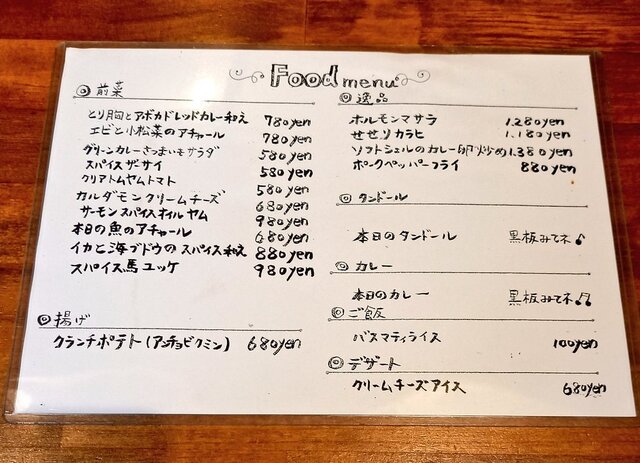 Food menu
◎前菜
とり胸とアボカドレッドカレー和え 780yen
エビと小松菜のアチャール 780yen
グリーンカレーさつまいもサラダ 580yen
スパイスザーサイ 580yen
クリアトムヤムトマト 580yen
カルダモンクリームチーズ 680yen
サーモンスパイスオイルヤム 980yen
本日の魚のアチャール 680yen
イカと海ブドウのスパイス和え 880yen
スパイス馬ユッケ 980yen
◎揚げ
クランチポテト(アンチョビクミン) 680yen
◎逸品
ホルモンマサラ 1,280yen
せせりカラヒ 1,180yen
ソフトシェルのカレー卵炒め 1,380yen
ポークペッパーフライ 880yen
◎タンドール
本日のタンドール 黒板みてネ♪
◎カレー
本日のカレー 黒板みてネ♬
◎ご飯
バスマティライス 100yen
◎デザート
クリームチーズアイス 680yen